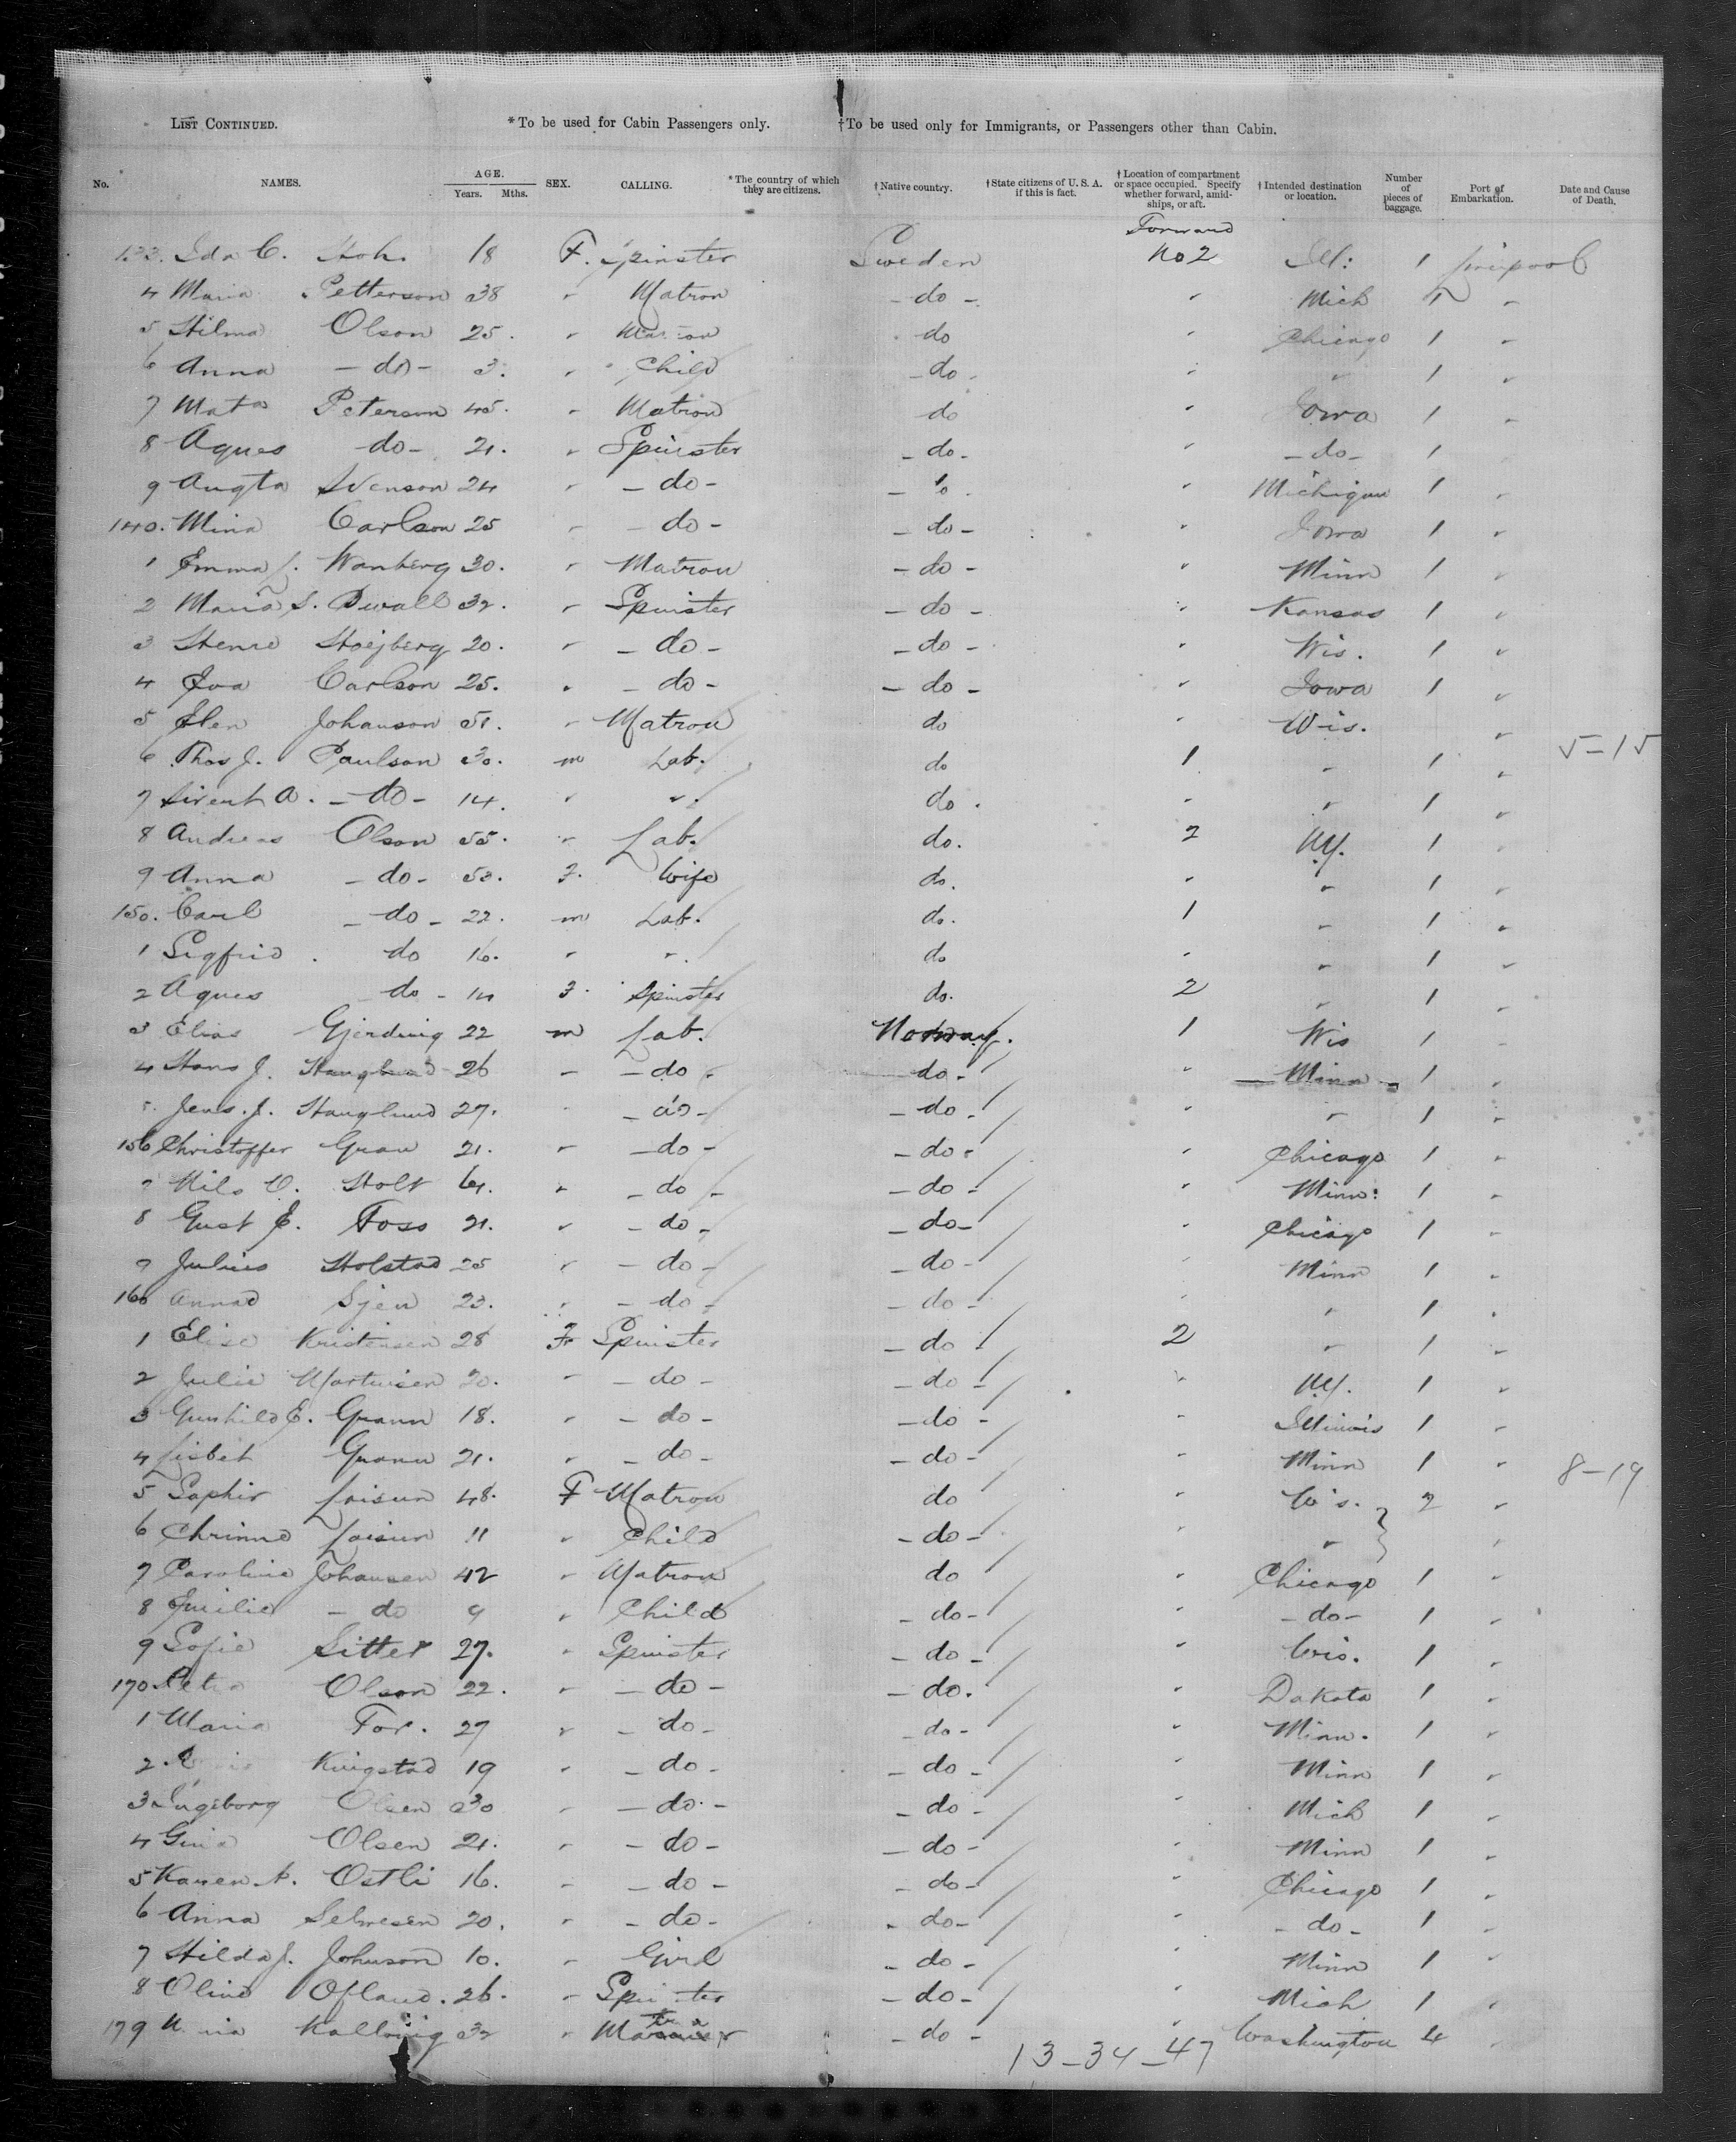 LIST CONTINUED. *To be used for Cabin Passengers only. †To be used only for Immigrants, or Passengers other than Cabin.
No. NAMES. AGE. Years. Mths. SEX. CALLING. *The country of which they are citizens. †Native country. †State citizens of U. S. A. if this is fact. †Location of compartment or space occupied. Specify whether forward, amidships, or aft. †Intended destination or location. Number of pieces of baggage. Port of Embarkation. Date and Cause of Death.
Forward
133. Ida C. 18 F. Spinster Sweden No 2 Ill: 1 Liverpool
4 Maria Petterson 38 " Matron - do - " Mich 1 "
5 Hilma Olson 25. " Matron do " Chicago 1 "
6 Anna - do - 3. " Child - do - " " 1 "
7 Mata Peterson 45. " Matron do " Iowa 1 "
8 Agnes do - 21. " Spinster - do - " - do - 1
9 Augta Svenson 24 " - do - - do - " Michigan 1 "
140. Mina Carlson 25 " - do - - do - " Iowa 1 "
1 Emma J. Wanberg 30. " Matron - do - " Minn 1 "
2 Maria S. 32. " Spinster - do - " Kansas 1 "
3 Hoijberg 20. " - do - - do - " Wis. 1 "
4 Eva Carlson 25. " - do - - do - " Iowa 1 "
5 Elen Johanson 51. " Matron do " Wis. "
6 Thos J. Paulson 30. m Lab. do 1 " 1 " 5-15
7 Sivert A. - do - 14. " " do. " " 1 "
8 Andreas Olson 55. " Lab. do. 2 NY. 1 "
9 Anna - do - 53. F. Wife do. " " 1 "
150. Carl - do - 22. m Lab. do. 1 " 1 "
1 Sigfrid. do 16. " " do " " 1 "
2 Agnes do - 14 F. Spinster do. 2 " 1 "
3 Elias Gjerding 22 m Lab. Norway. 1 Wis 1 "
4 Hans J. Hauglund 26 " - do - - do - " Minn 1 "
5 Jens. J. Hauglund 27. " - do - - do - " " 1 "
156 Christoffer Gran 21. " - do - - do - " Chicago 1 "
7 Nils O. Holt 64. " - do - - do - " Minn: 1 "
8 Gust E. Foss 21. " - do - - do - " Chicago 1 "
9 Julius Holstad 25 " - do - - do - " Minn 1 "
160 23. " - do - - do - " " 1 "
1 Elise Kristensen 28 F Spinster - do - 2 " 1 "
2 Julie Martinsen 20. " - do - - do - " NY. 1 "
3 Gunhild E. Grann 18. " - do - - do - " Illinois 1 "
4 Lisbet Grann 21. " - do - - do - " Minn 1 " 8-19
5 Sophie 48. F Matron do " Wis. 2 "
6 11 " Child - do - " " "
7 Caroline Johansen 42 " Matron do " Chicago 1 "
8 Emilie - do 9 " Child - do - " - do - 1 "
9 Sofie Sitter 27. " Spinster - do - " Wis. 1 "
170. Petra Olson 22. " - do - - do. " Dakota 1 "
1 Maria For. 27 " - do - do - " Minn. 1 "
2. Kingstad 19 " - do - - do - " Minn 1 "
3 Ingeborg Olsen 30 " - do - - do - " Mich 1 "
4 Gina Olsen 21. " - do - - do - " Minn 1 "
5 Karen A. Ostli 16. " - do - - do - " Chicago 1 "
6 Anna Selmesen 20. " - do - - do - " - do - 1 "
7 Hilda J. Johnson 10. " Girl - do - " Minn 1 "
8 Oline Ofland. 26. " Spinster - do - " Mich 1 "
179 32 " Matron - do - " Washington 4 "
13-34-47